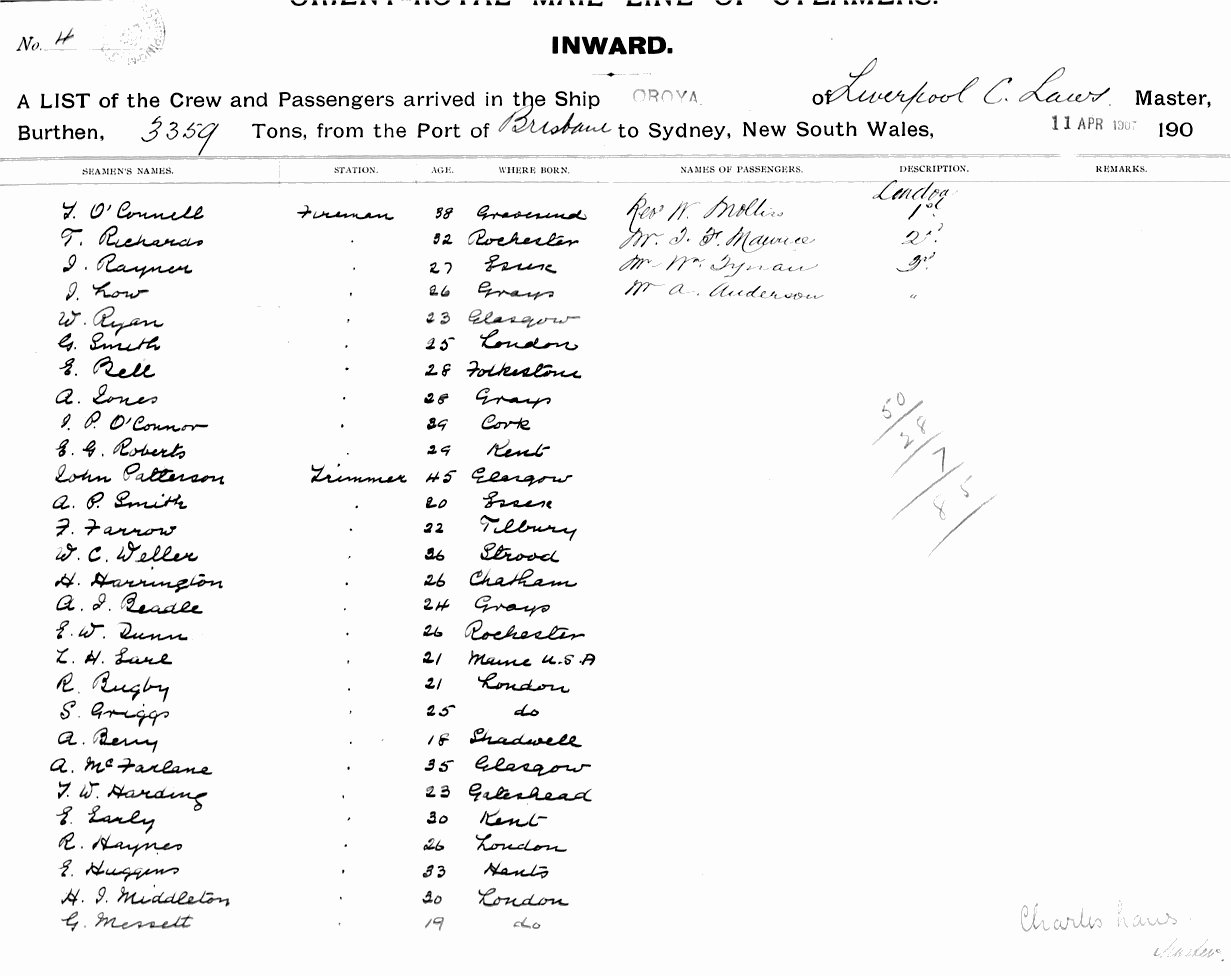 ORIENT-ROYAL MAIL LINE OF STEAMERS.
No. 4
INWARD.
A LIST of the Crew and Passengers arrived in the Ship OROYA. of Liverpool C. Laws. Master,
Burthen, 3359 Tons, from the Port of Brisbane to Sydney, New South Wales, 11 APR 1907 190
SEAMEN'S NAMES. STATION. AGE. WHERE BORN. NAMES OF PASSENGERS. DESCRIPTION. REMARKS.
London
T. O'Connell Fireman 38 Gravesend Revd W. Mollis 1st
T. Richards . 32 Rochester Mr. I. F. Maurice 2nd
I. Rayner . 27 Essex Mr Wm. Tynan 3rd
I. Low . 26 Grays Mr A. Anderson "
W. Ryan . 23 Glasgow
G. Smith . 25 London
E. Bell . 28 Folkestone
A. Jones . 28 Grays
J. P. O'Connor . 39 Cork
E. G. Roberts . 29 Kent
John Patterson Trimmer 45 Glasgow
A. P. Smith . 20 Essex
F. Farrow . 22 Tilbury
W. C. Weller . 36 Strood
H. Harrington . 26 Chatham
A. J. Beadle . 24 Grays
E. W. Dunn . 26 Rochester
L. H. Earl . 21 Maine U.S.A
R. Bugby . 21 London
S. Griggs . 25 do
A. Berry . 18 Shadwell
A. McFarlane . 35 Glasgow
T. W. Harding . 23 Gateshead
E. Early . 30 Kent
R. Haynes . 26 London
E. Huggins . 33 Hants
H. J. Middleton . 30 London
G. Messett . 19 do
50/
28/
7/
85/
Charles Laws.
Master.